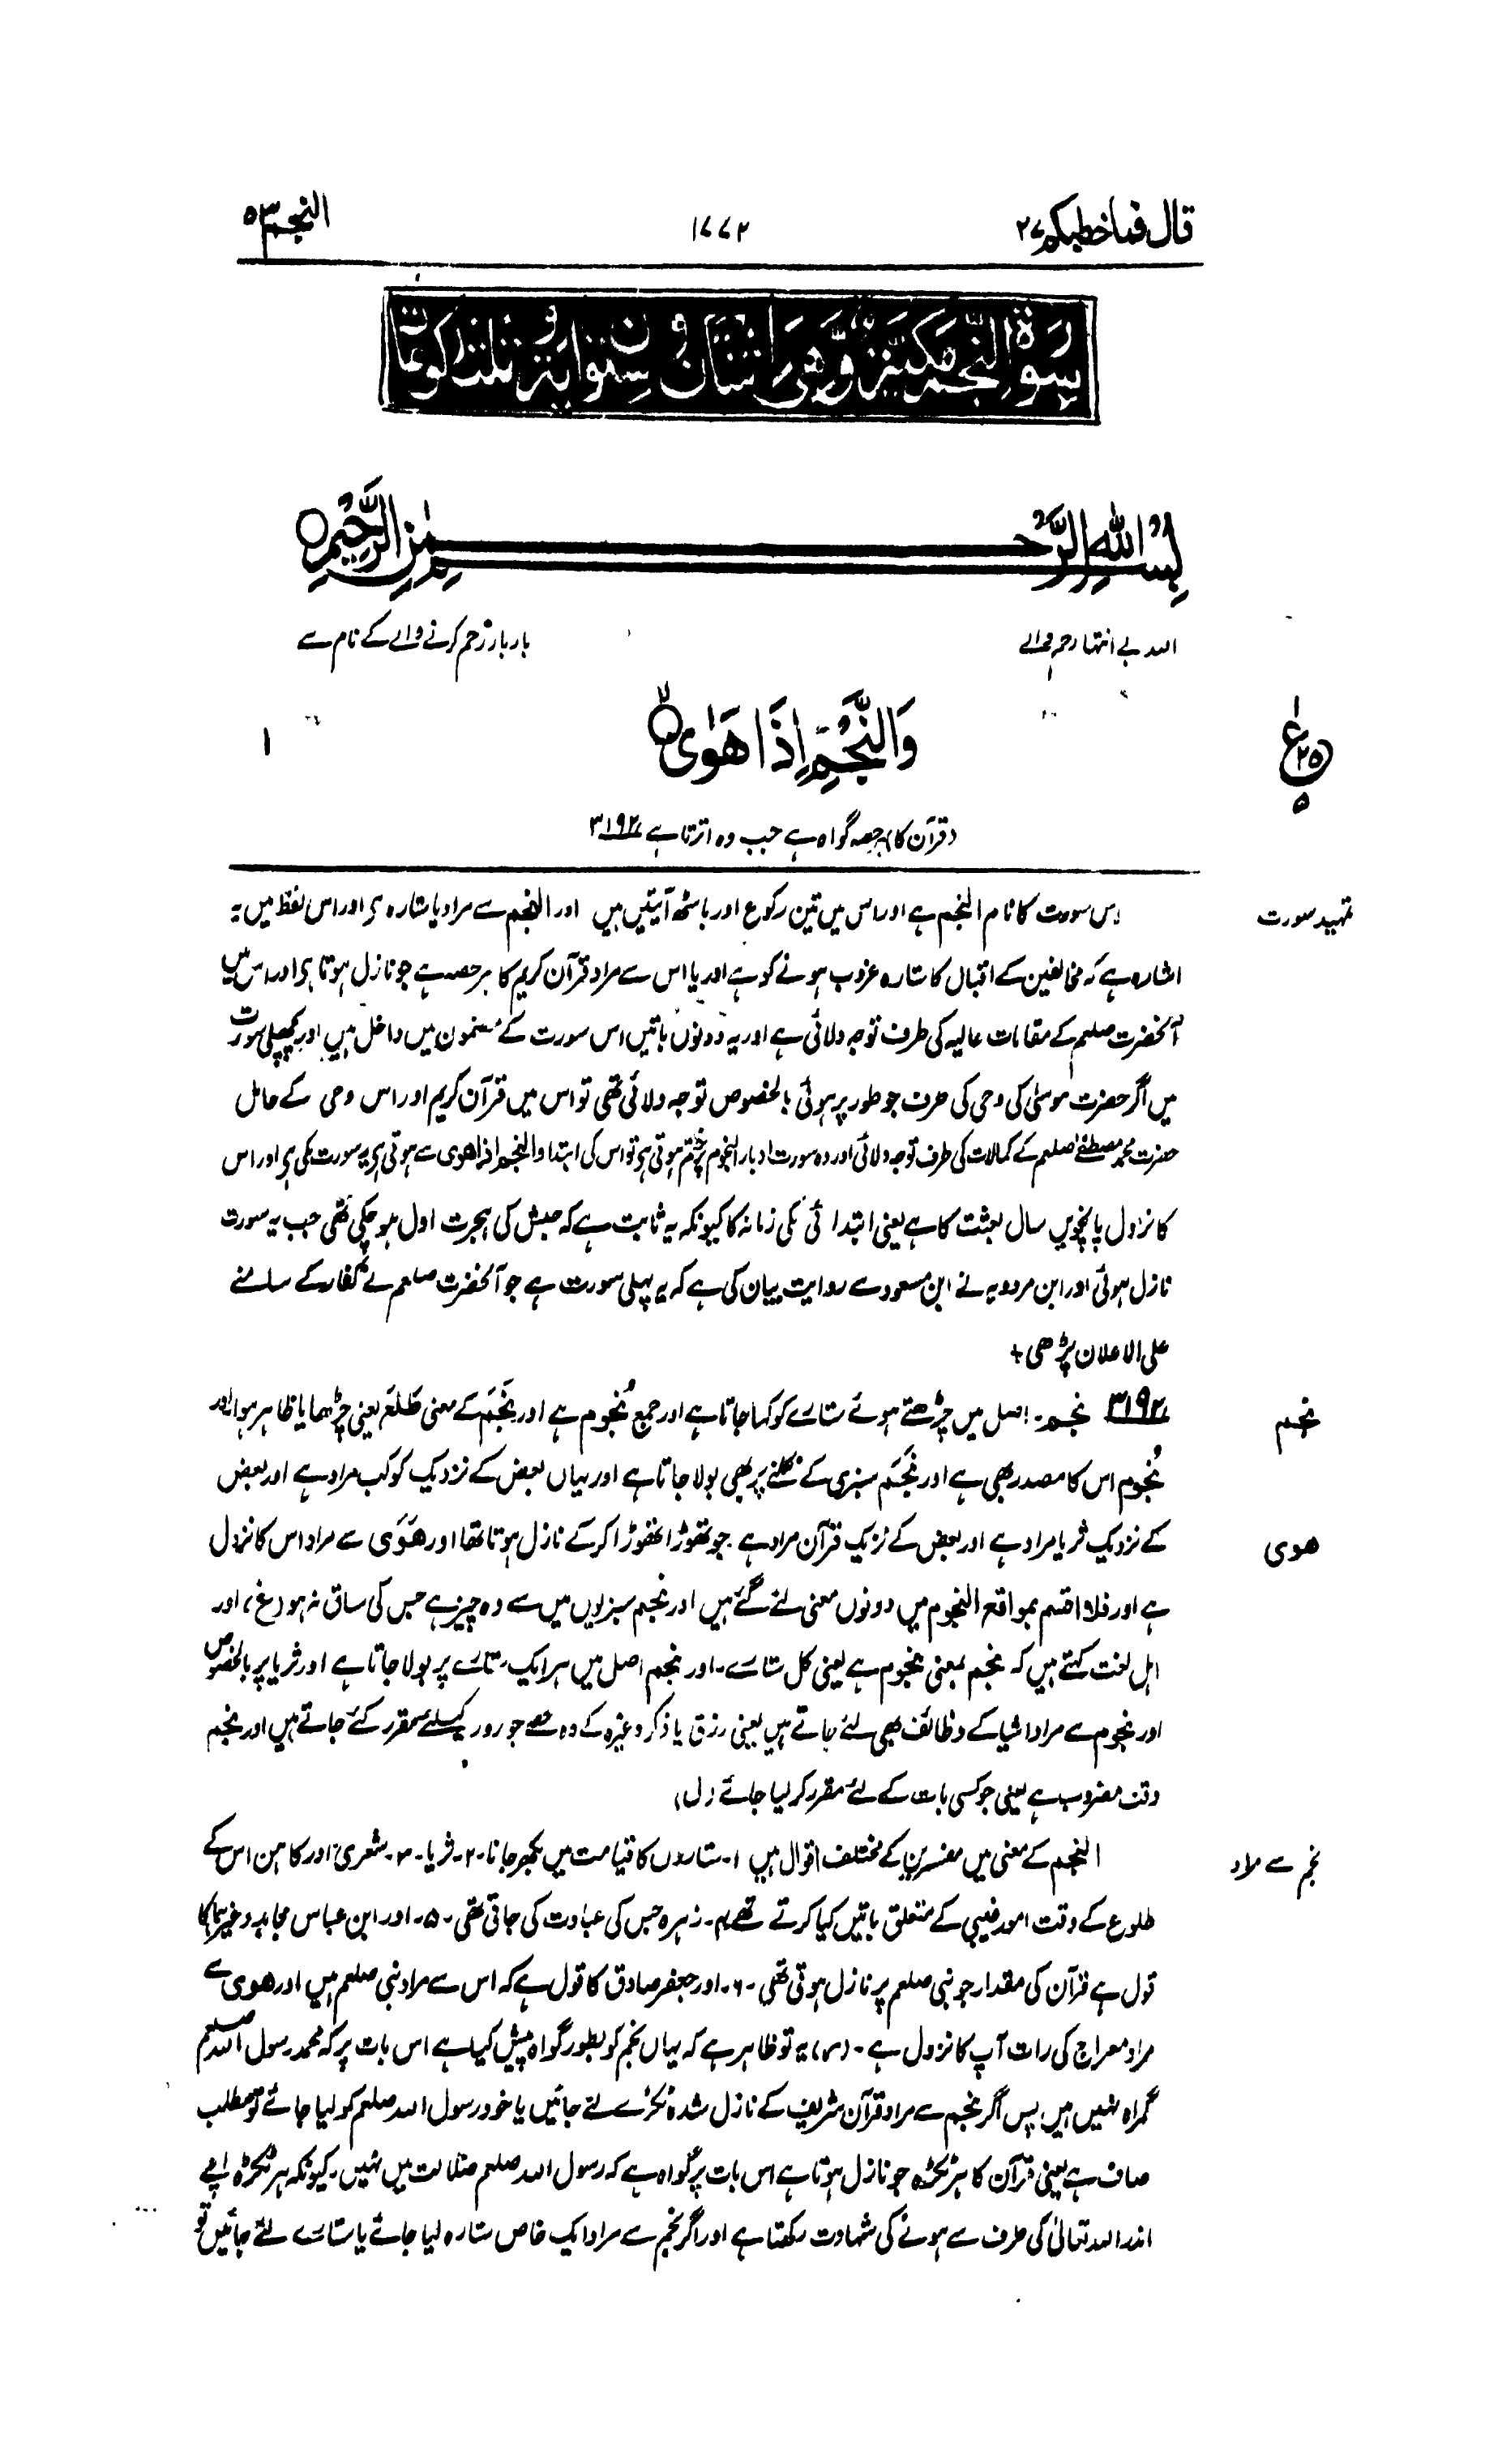 قال فما خطبکم ۲۷ ۱۷۷۲ النجم ۵۳
سورۃ النجم مکیۃ وھی اثنتان وستون ایۃ وثلث رکوعات
بِسْمِ اللّٰهِ الرَّحْمٰنِ الرَّحِيْمِ
اللہ بے انتہا رحم والے بار بار رحم کرنے والے کے نام سے
وَالنَّجْمِ اِذَا هَوٰى ۱
(قرآن کا) ہر حصہ گواہ ہے جب وہ اترتا ہے ۳۱۹۲
تمہید سورت
اس سورت کا نام النجم ہے اور اس میں تین رکوع اور باسٹھ آیتیں ہیں اور النجم سے مراد یا ستارہ ہے اور اس لفظ میں یہ
اشارہ ہے کہ مخالفین کے اقبال کا ستارہ غروب ہونے کو ہے اور یا اس سے مراد قرآن کریم کا ہر حصہ ہے جو نازل ہوتا ہے اور اس میں
آنحضرت صلعم کے مقامات عالیہ کی طرف توجہ دلائی ہے اور یہ دونوں باتیں اس سورت کے مضمون میں داخل ہیں اور پچھلی سورت
میں اگر حضرت موسیٰ کی وحی کی طرف جو طور پر ہوئی بالخصوص توجہ دلائی تھی تو اس میں قرآن کریم اور اس وحی کے حامل
حضرت محمد مصطفےٰ صلعم کے کمالات کی طرف توجہ دلائی اور وہ سورت ادبار النجوم پر ختم ہوتی ہے تو اس کی ابتدا والنجم اذا ھوی سے ہوتی ہے یہ سورت مکی ہے اور اس
کا نزول پانچویں سال بعثت کا ہے یعنی ابتدائی مکی زمانہ کا کیونکہ یہ ثابت ہے کہ حبش کی ہجرت اول ہو چکی تھی جب یہ سورت
نازل ہوئی اور ابن مردویہ نے ابن مسعود سے روایت بیان کی ہے کہ یہ پہلی سورت ہے جو آنحضرت صلعم نے کفار کے سامنے
علی الاعلان پڑھی +
نجم
۳۱۹۲ نجم۔ اصل میں چڑھتے ہوئے ستارے کو کہا جاتا ہے اور جمع نُجوم ہے اور نَجَمَ کے معنی طَلَعَ یعنی چڑھا یا ظاہر ہوا اور
نُجوم اس کا مصدر بھی ہے اور نَجَمَ سبزی کے نکلنے پر بھی بولا جاتا ہے اور یہاں بعض کے نزدیک کوکب مراد ہے اور بعض
ھوی
کے نزدیک ثریا مراد ہے اور بعض کے نزدیک قرآن مراد ہے جو تھوڑا تھوڑا کر کے نازل ہوتا تھا اور ھَوٰی سے مراد اس کا نزول
ہے اور فلا اقسم بمواقع النجوم میں دونوں معنی لئے گئے ہیں اور نجم سبزیوں میں سے وہ چیز ہے جس کی ساق نہ ہو (غ)، اور
اہل لغت کہتے ہیں کہ نجم بمعنی نجوم ہے یعنی کل ستارے۔ اور نجم اصل میں ہر ایک ستارے پر بولا جاتا ہے اور ثریا پر بالخصوص
اور نجوم سے مراد اشیا کے وظائف بھی لئے جاتے ہیں یعنی رزق یا ذکر وغیرہ کے وہ حصے جو روز کیلئے مقرر کئے جاتے ہیں اور نجم
وقت مضروب ہے یعنی جو کسی بات کے لئے مقرر کر لیا جائے (ل)
نجم سے مراد
النجم کے معنی میں مفسرین کے مختلف اقوال ہیں ۱۔ ستاروں کا قیامت میں بکھر جانا۔ ۲۔ ثریا۔ ۳۔ شعریٰ اور کاہن اس کے
طلوع کے وقت امور غیبی کے متعلق باتیں کیا کرتے تھے ۴۔ زہرہ جس کی عبادت کی جاتی تھی۔ ۵۔ اور ابن عباس مجاہد وغیرہما کا
قول ہے قرآن کی مقدار جو نبی صلعم پر نازل ہوتی تھی۔ ۶۔ اور جعفر صادق کا قول ہے کہ اس سے مراد نبی صلعم ہیں اور ھوی سے
مراد معراج کی رات آپ کا نزول ہے۔ (ر) یہ تو ظاہر ہے کہ یہاں نجم کو بطور گواہ پیش کیا ہے اس بات پر کہ محمد رسول اللہ صلعم
گمراہ نہیں ہیں پس اگر نجم سے مراد قرآن شریف کے نازل شدہ ٹکڑے لئے جائیں یا خود رسول اللہ صلعم کو لیا جائے تو مطلب
صاف ہے یعنی قرآن کا ہر ٹکڑہ جو نازل ہوتا ہے اس بات پر گواہ ہے کہ رسول اللہ صلعم ضلالت میں نہیں۔ کیونکہ ہر ٹکڑہ اپنے
اندر اللہ تعالیٰ کی طرف سے ہونے کی شہادت رکھتا ہے اور اگر نجم سے مراد ایک خاص ستارہ لیا جائے یا ستارے لئے جائیں تو